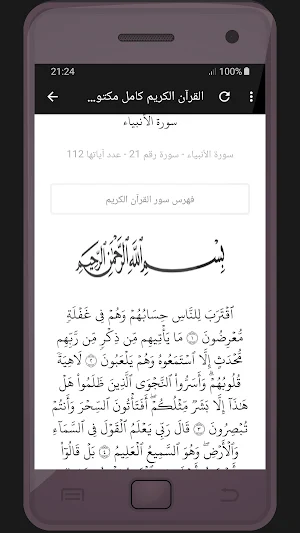 21:24 100%
القرآن الكريم كامل مكتو...
سورة الأنبياء
سورة الأنبياء - سورة رقم 21 - عدد آياتها 112
فهرس سور القرآن الكريم
بِسْمِ اللَّهِ الرَّحْمَٰنِ الرَّحِيمِ
ٱقْتَرَبَ لِلنَّاسِ حِسَابُهُمْ وَهُمْ فِى غَفْلَةٍ
مُّعْرِضُونَ ﴿١﴾ مَا يَأْتِيهِم مِّن ذِكْرٍ مِّن رَّبِّهِم
مُّحْدَثٍ إِلَّا ٱسْتَمَعُوهُ وَهُمْ يَلْعَبُونَ ﴿٢﴾ لَاهِيَةً
قُلُوبُهُمْ ۗ وَأَسَرُّوا۟ ٱلنَّجْوَى ٱلَّذِينَ ظَلَمُوا۟ هَلْ
هَٰذَآ إِلَّا بَشَرٌ مِّثْلُكُمْ ۖ أَفَتَأْتُونَ ٱلسِّحْرَ وَأَنتُمْ
تُبْصِرُونَ ﴿٣﴾ قَالَ رَبِّى يَعْلَمُ ٱلْقَوْلَ فِى ٱلسَّمَآءِ
وَٱلْأَرْضِ ۖ وَهُوَ ٱلسَّمِيعُ ٱلْعَلِيمُ ﴿٤﴾ بَلْ قَالُوٓا۟